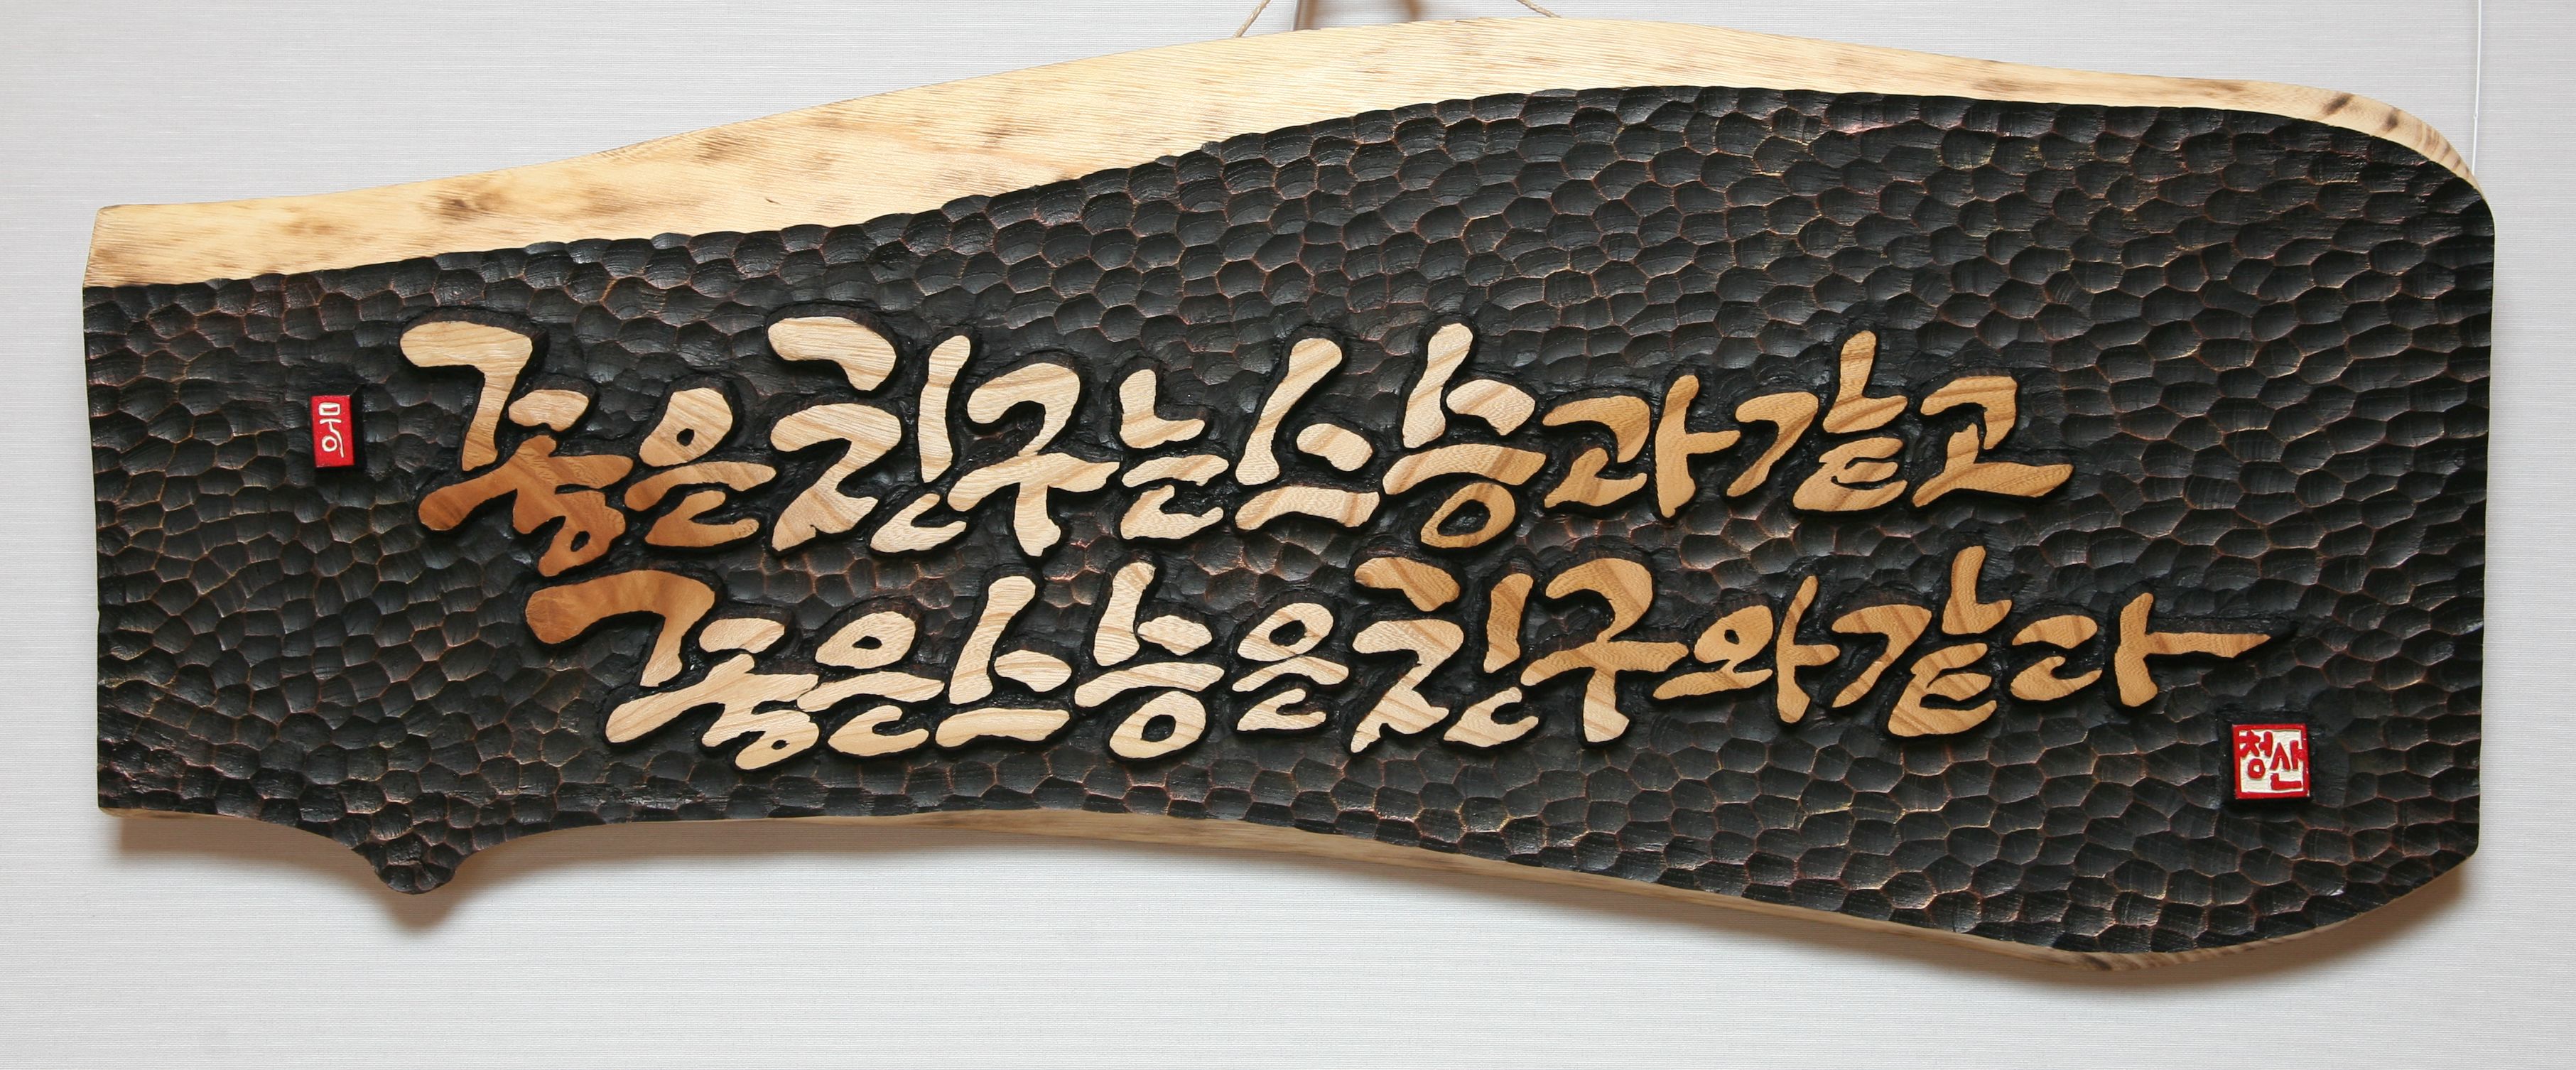 좋은친구는스승과같고
좋은스승은친구와같다
청산